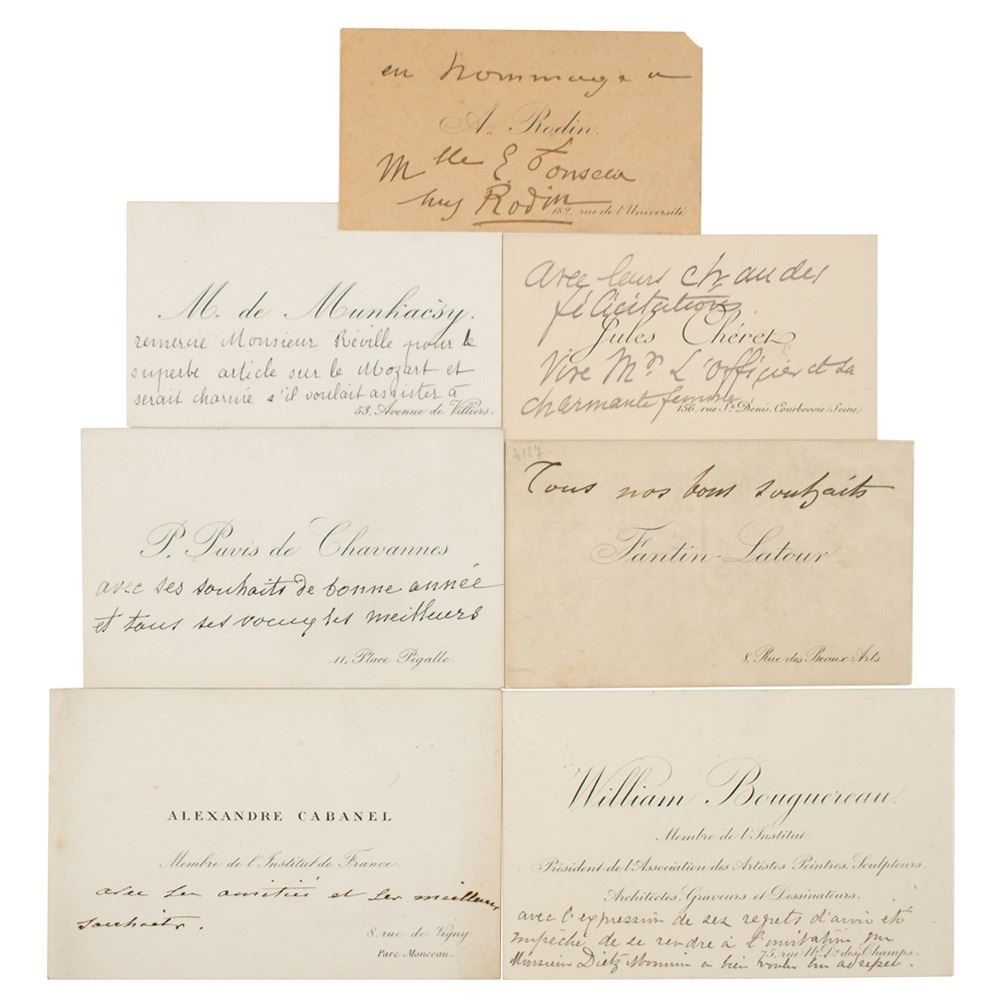 en hommage a
A. Rodin.
Mlle E Fonseca
chez Rodin
182, rue de l'Université
M. de Munkacsy.
remercie Monsieur Réville pour le
superbe article sur le Mozart et
serait charmé s'il voulait assister à
53, Avenue de Villiers.
avec leurs chaudes
félicitations.
Jules Chéret
Vive Mr. L'Officier et sa
charmante femme.
156, rue St. Denis, Courbevoie (Seine)
P. Puvis de Chavannes
avec ses souhaits de bonne année
et tous ses voeux les meilleurs
11, Place Pigalle.
4187.
Tous nos bons souhaits
Fantin-Latour
8, Rue des Beaux-Arts
ALEXANDRE CABANEL
Membre de l'Institut de France.
avec ses amitiés et ses meilleurs
souhaits.
8 rue de Vigny
Parc Monceau.
William Bouguereau.
Membre de l'Institut
Président de l'Association des Artistes Peintres, Sculpteurs,
Architectes, Graveurs et Dessinateurs.
avec l'expression de ses regrets d'avoir été
empêché de se rendre à l'invitation que
75, rue N.-D. des Champs.
Monsieur Dietz Monnin a bien voulu lui adresser.